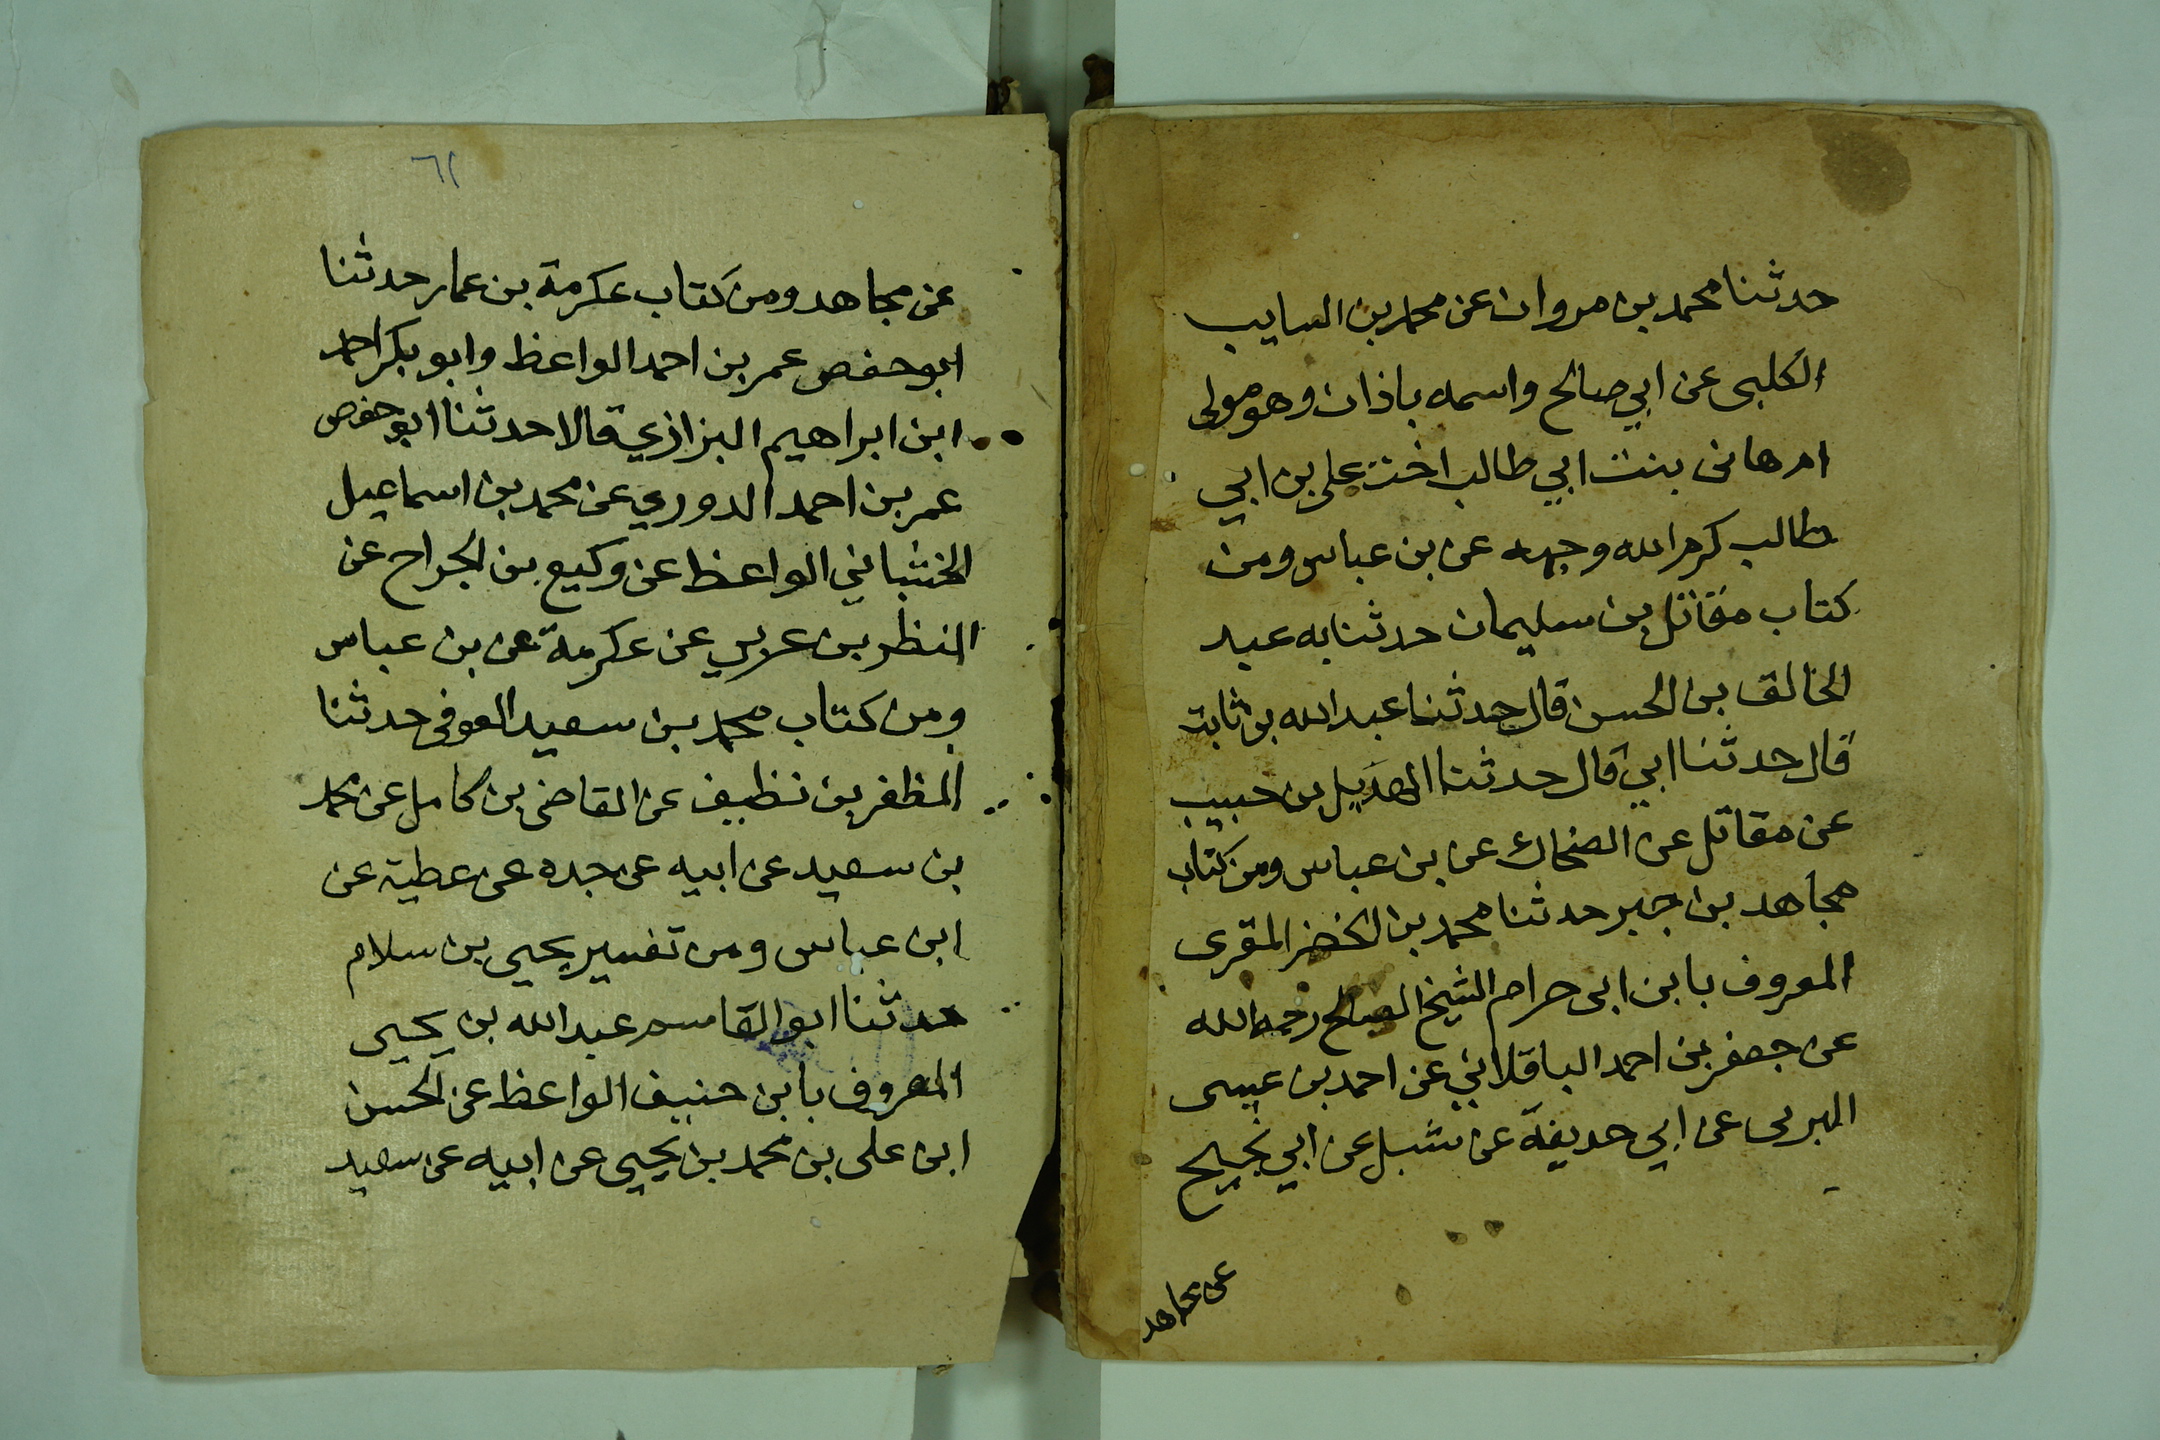 حدثنا محمد بن مروان عن محمد بن السايب
الكلبى عن ابي صالح واسمه باذان وهو مولى
ام هانى بنت ابي طالب اخت على بن ابي
طالب كرم الله وجهه عن بن عباس ومن
كتاب مقاتل بن سليمان حدثنا به عبد
الخالق بن الحسن قال حدثنا عبد الله بن ثابت
قال حدثنا ابي قال حدثنا الهذيل بن حبيب
عن مقاتل عن الضحاك عن بن عباس ومن كتاب
مجاهد بن جبر حدثنا محمد بن الخضر المقرى
المعروف بابن ابى حرام الشيخ الصالح رحمه الله
عن جعفر بن احمد الباقلاني عن احمد بن عيسى
البرتى عن ابي حديفة عن شبل عن ابي نجيح
عن مجاهد
٦٢
عن مجاهد ومن كتاب عكرمة بن عمار حدثنا
ابو حفص عمر بن احمد الواعظ وابو بكر احمد
ابن ابراهيم البزازي قالا حدثنا ابو حفص
عمر بن احمد الدوري عن محمد بن اسماعيل
الواعظ عن وكيع بن الجراح عن
النظر بن عربي عن عكرمة عن بن عباس
ومن كتاب محمد بن سعيد العوفى حدثنا
المظفر بن نظيف عن القاضى بن كامل عن محمد
بن سعيد عن ابيه عن جده عن عطية عن
ابن عباس ومن تفسير يحيى بن سلام
حدثنا ابو القاسم عبد الله بن يحيى
المعروف بابن حنيف الواعظ عن الحسن
ابن على بن محمد بن يحيى عن ابيه عن سعيد